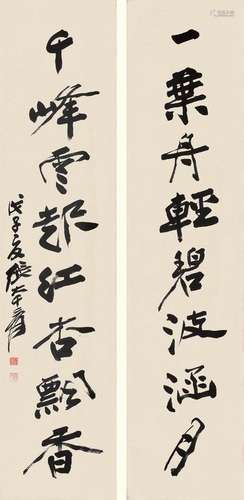 一葉舟輕碧波涵月
千峰雲起紅杏飄香
戊子之夏張大千爰